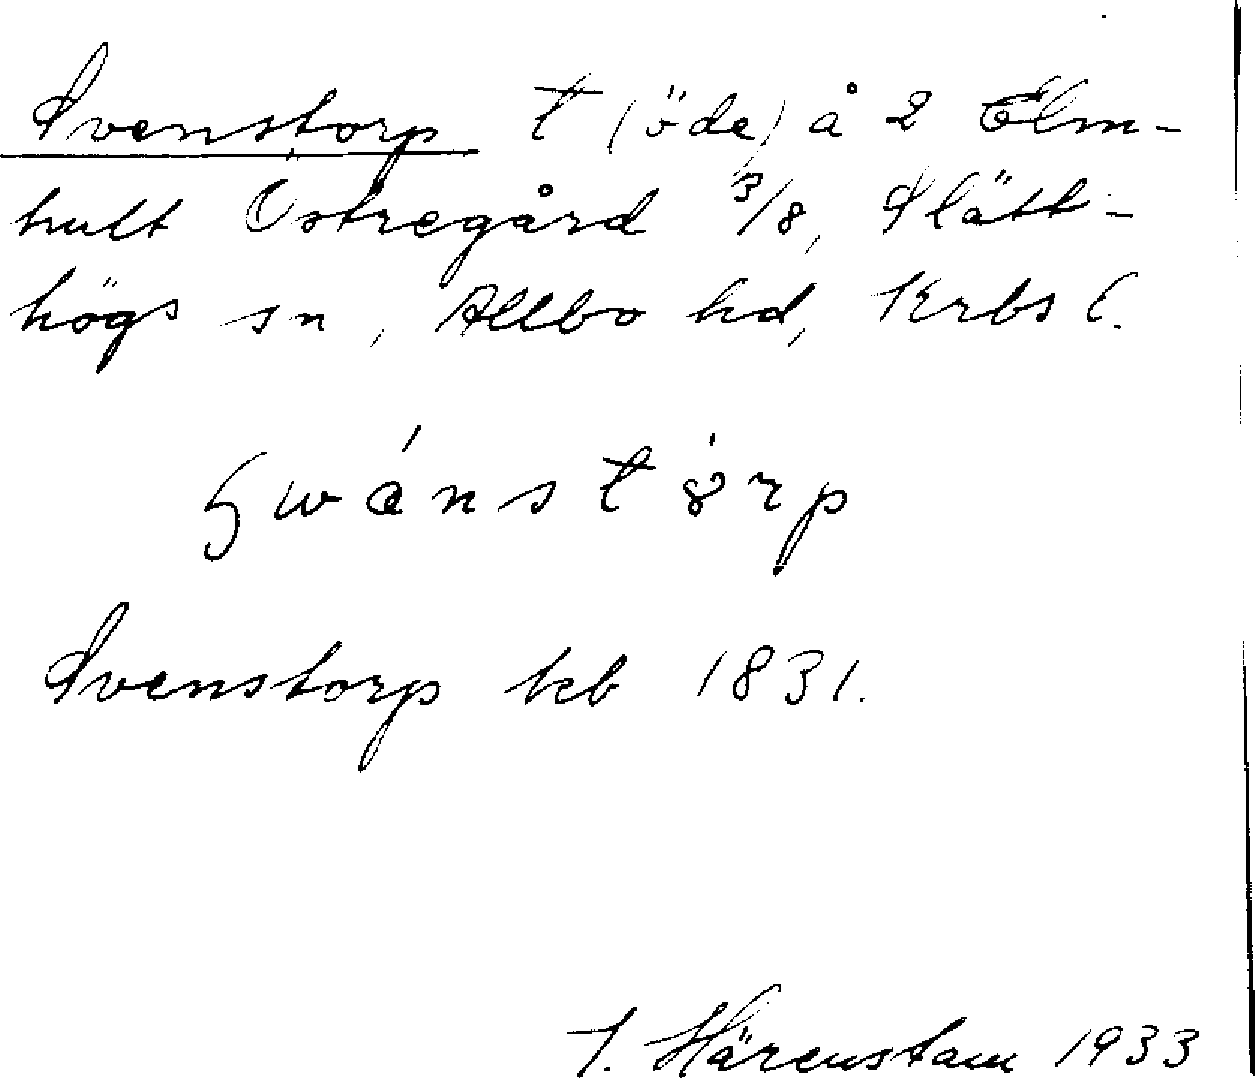 Svenstorp t (öde) å 2 Elm-
hult Östregård 3/8, Slätt-
högs sn, Allbo hd, Krbs l.
swánstòrp
Svenstorp kb 1831.
J. Härenstam 1933